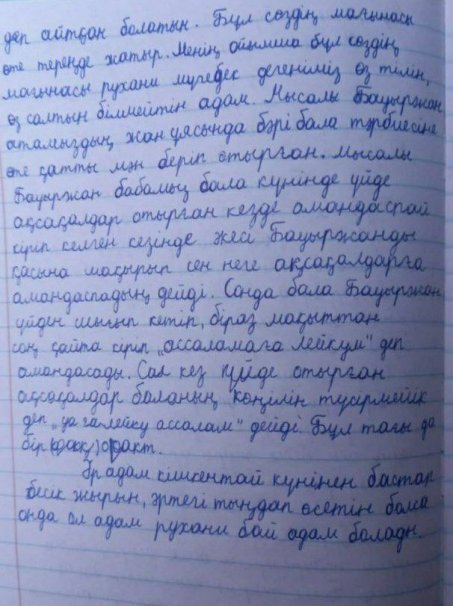 деп айтқан болатын. Бұл сөздің мағынасы
өте тереңде жатыр. Менің ойымша бұл сөздің
мағынасы рухани мүгедек дегеніміз өз тілін,
өз салтын білмейтін адам. Мысалы Бауыржан
атамыздың жан ұясында бәрі бала тәрбиесіне
өте қатты мән беріп отырған. Мысалы
Бауыржан бабамыз бала күнінде үйде
ақсақалдар отырған кезде амандаспай
кіріп келген кезінде әжесі Бауыржанды
қасына шақырып сен неге ақсақалдарға
амандаспадың дейді. Сонда бала Бауыржан
үйден шығып кетіп, біраз уақыттан
соң қайта кіріп „ассаламаға лейкум" деп
амандасады. Сол кез үйде отырған
ақсақалдар баланың көңілін түсірмейік
деп „уағалейку ассалам" дейді. Бұл тағы да
бір факт.
Әр адам кішкентай күнінен бастап
бесік жырын, ертегі тыңдап өсетін бола
онда ол адам рухани бай адам болады.